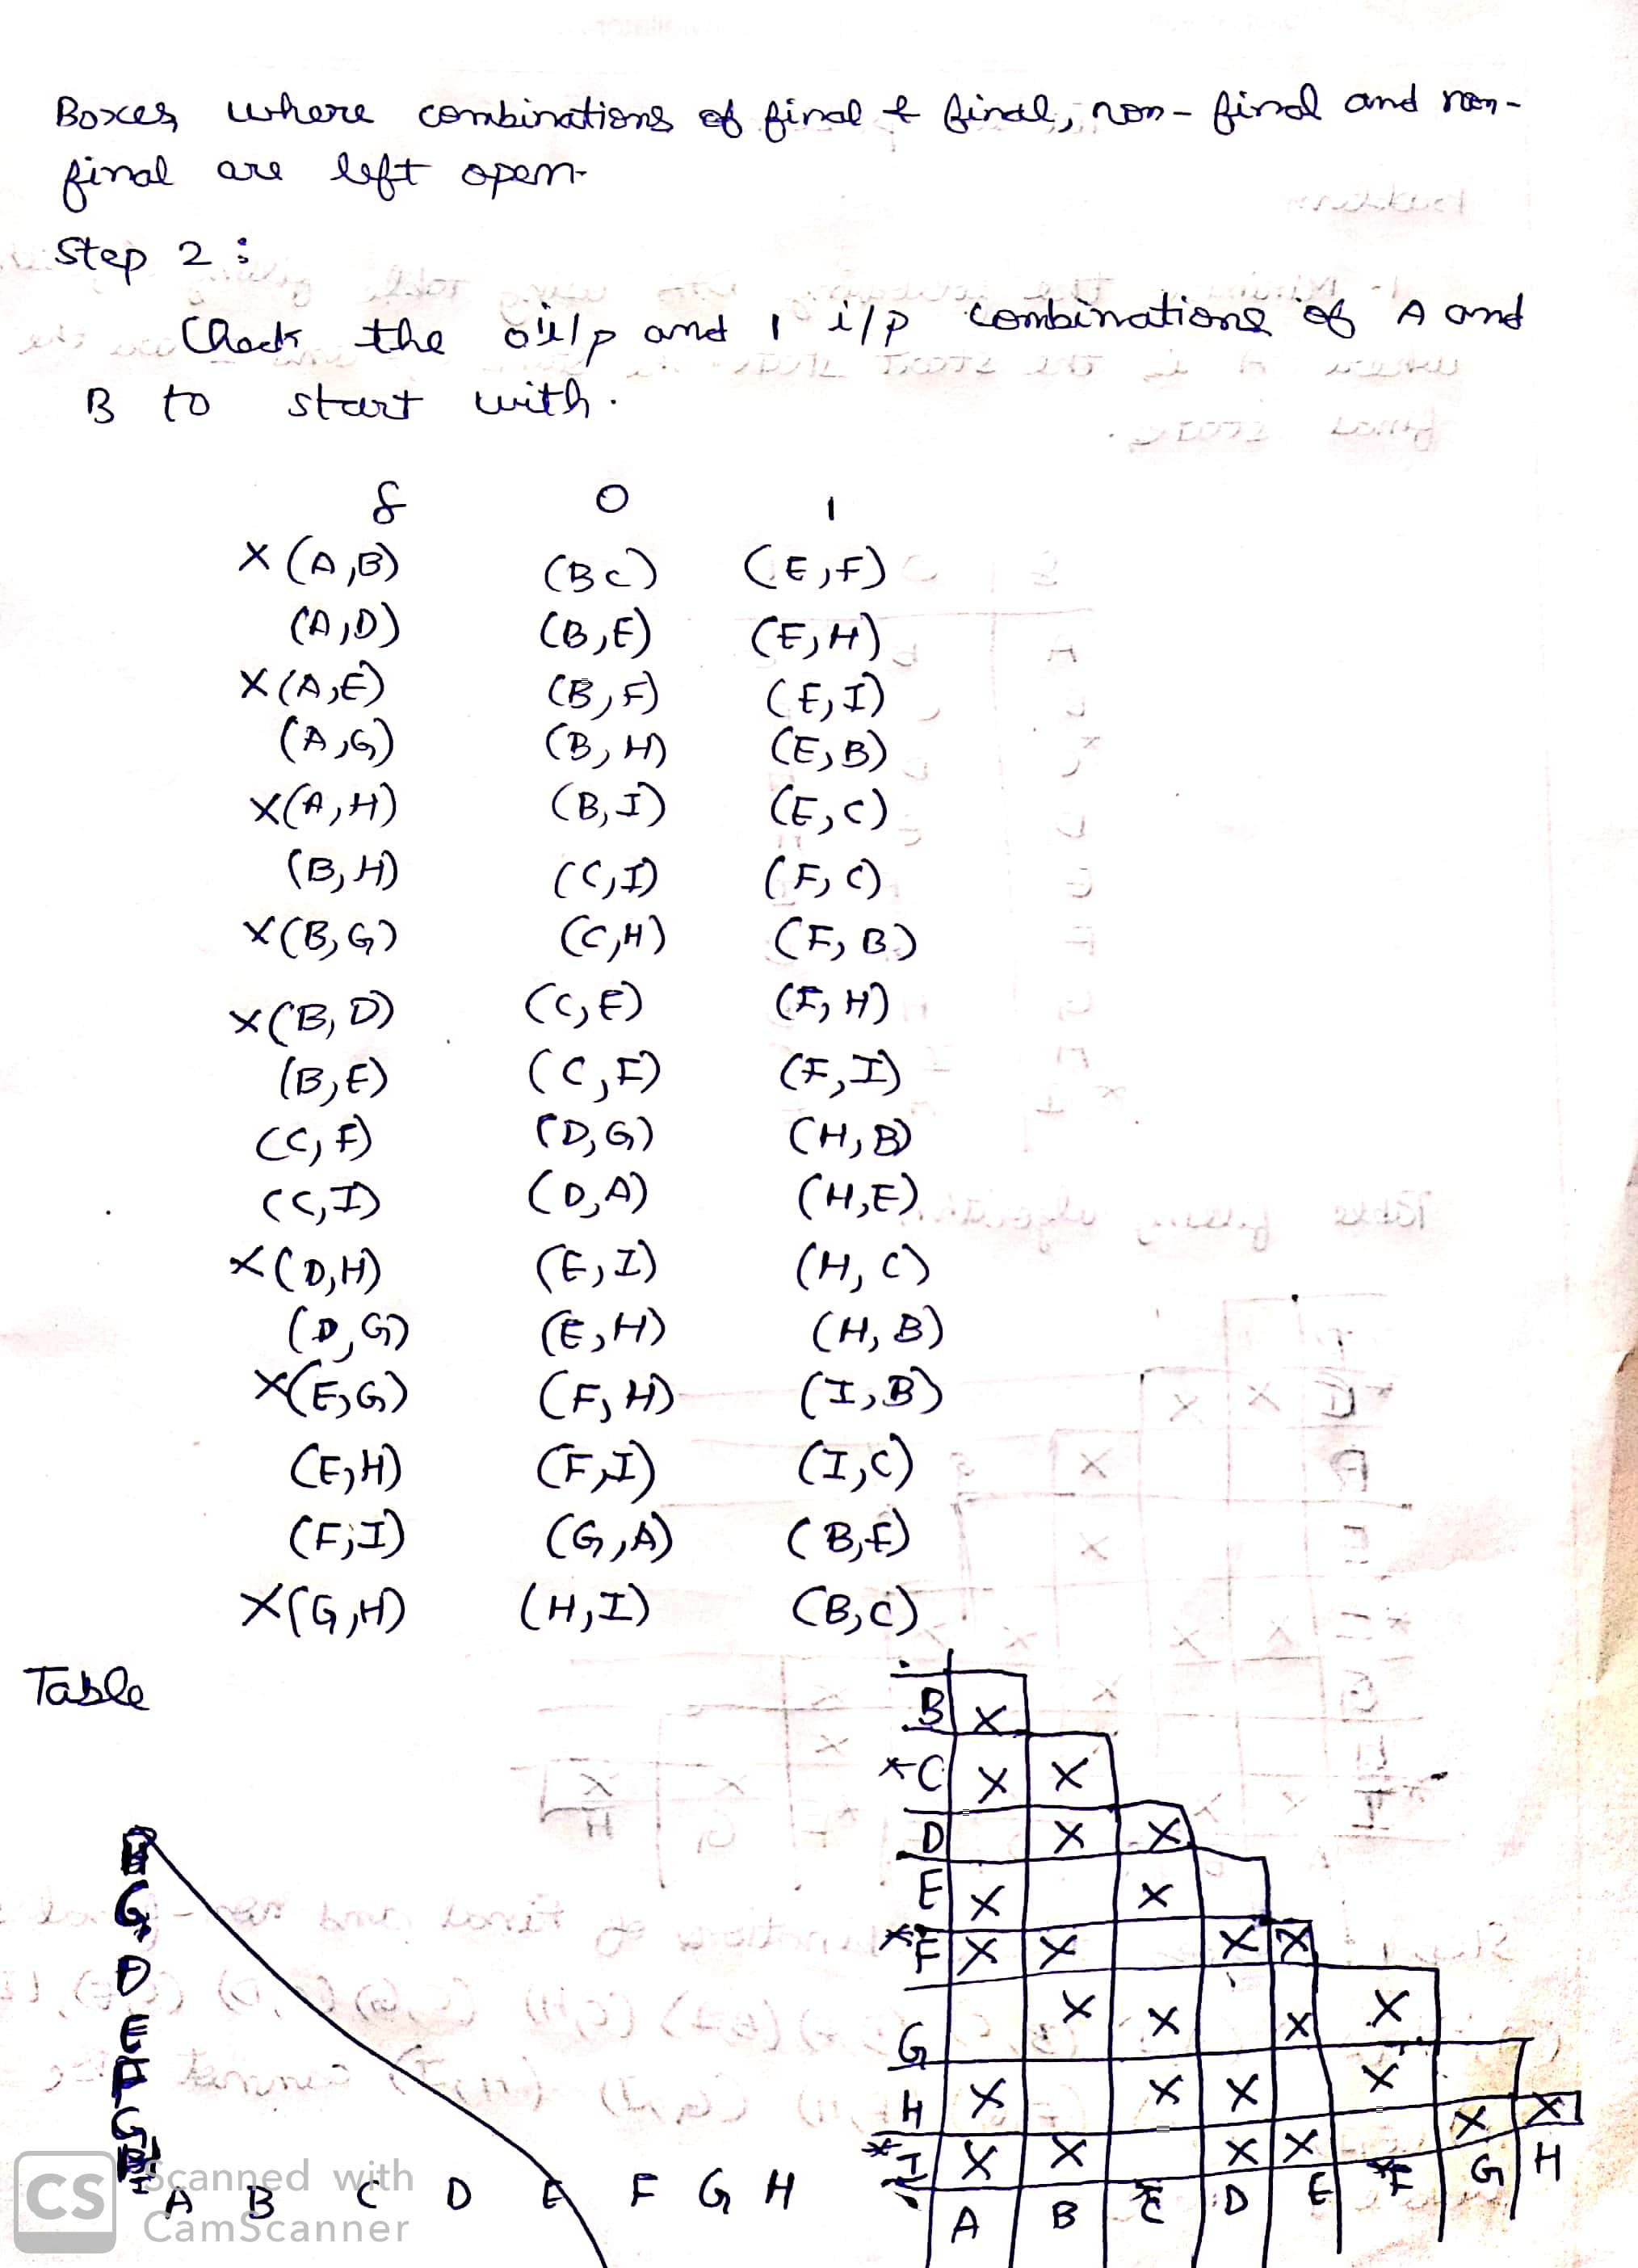 Boxes where combinations of final & final, non-final and non-
final are left open.
Step 2 :
Check the 0 i/p and 1 i/p combinations of A and
B to start with.
δ 0 1
X (A,B) (BC) (E,F)
(A,D) (B,E) (E,H)
X (A,E) (B,F) (E,I)
(A,G) (B,H) (E,B)
X (A,H) (B,I) (E,C)
(B,H) (C,I) (F,C)
X (B,G) (C,H) (F,B)
X (B,D) (C,E) (F,H)
(B,E) (C,F) (F,I)
(C,F) (D,G) (H,B)
(C,I) (D,A) (H,E)
X (D,H) (E,I) (H,C)
(D,G) (E,H) (H,B)
X (E,G) (F,H) (I,B)
(E,H) (F,I) (I,C)
(F,I) (G,A) (B,E)
X (G,H) (H,I) (B,C)
Table
B X
*C X X
D X X
E X X
*F X X X X
G X X X X
H X X X X
*I X X X X X X
A B C D E *F G H
D
E
A B C D E F G H
CS Scanned with
CamScanner